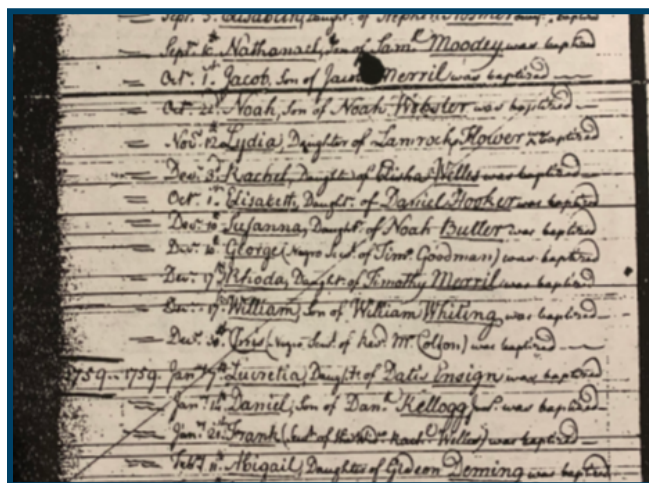 Sept. 5. Elisabeth, Daught. of Stephen Hosmer baptized
— Sept. 16th Nathanael, Son of Sam.ll Moodey was baptized
— Oct. 1st Jacob, Son of Jacob Merril was baptized —
— Oct. Noah, Son of Noah Webster was baptized —
— Nov. 12th Lydia, Daughter of Lamrock Flower baptized
— Dec. 3d Rachel, Daught. of Elisha Welles was baptized
— Oct. 1st Elisabeth, Daught. of Daniel Hooker was baptized
— Dec. 10th Susanna, Daught. of Noah Butler was baptized
— Dec. 10th George (Negro Serv. of Tim.o Goodman) was baptized
— Dec. 17th Rhoda, Daught. of Timothy Merril was baptized
— Dec. 17th William, Son of William Whiting was baptized —
— Dec. (Negro Serv. of Rev. Mr. Colton) was baptized —
1759.. 1759 Jan.y 7th Lucretia, Daught. of Datis Ensign was baptized
— Jan.y 14th Daniel, Son of Dan.ll Kellogg jun. was baptized
— Jan.y 21st Frank (Serv. of Rach.l Welles) was baptized —
— Feb.y 11th Abigail, Daughter of Gideon Deming was baptized